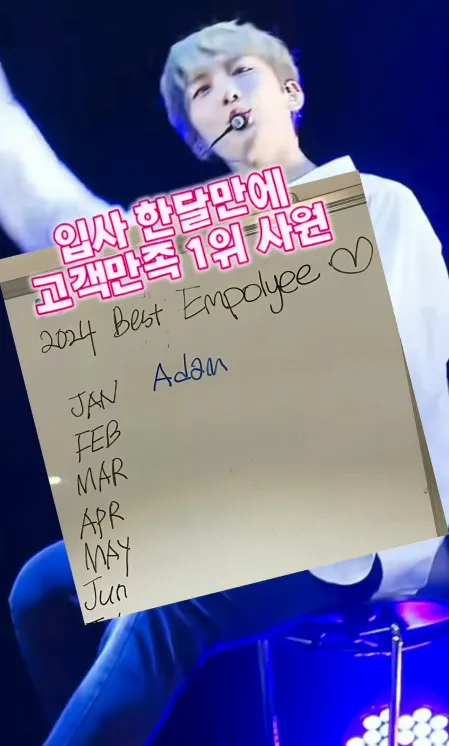 입사 한달만에
고객만족 1위 사원
2024 Best Empolyee ♡
JAN Adam
FEB
MAR
APR
MAY
Jun